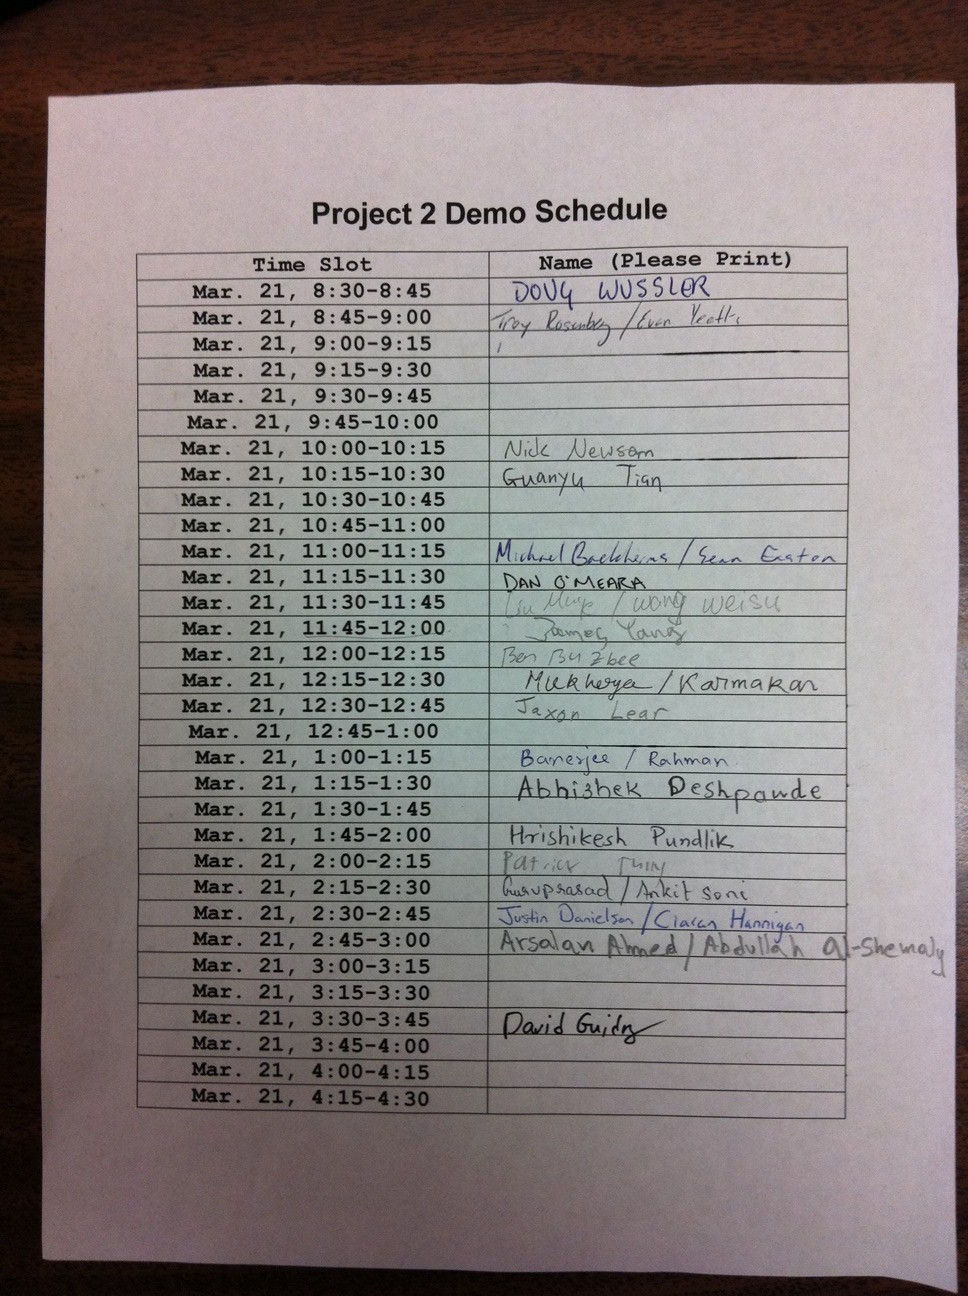 Project 2 Demo Schedule
Time Slot Name (Please Print)
Mar. 21, 8:30-8:45 DOUG WUSSLER
Mar. 21, 8:45-9:00 Troy Rosenberg / Evan Yeatts
Mar. 21, 9:00-9:15
Mar. 21, 9:15-9:30
Mar. 21, 9:30-9:45
Mar. 21, 9:45-10:00
Mar. 21, 10:00-10:15 Nick Newsom
Mar. 21, 10:15-10:30 Guanyu Tian
Mar. 21, 10:30-10:45
Mar. 21, 10:45-11:00
Mar. 21, 11:00-11:15 Michael / Sean Easton
Mar. 21, 11:15-11:30 DAN O'MEARA
Mar. 21, 11:30-11:45 Liu / Wang Weisu
Mar. 21, 11:45-12:00 James Yang
Mar. 21, 12:00-12:15 Ben Buzbee
Mar. 21, 12:15-12:30 Mukherjee / Karmakar
Mar. 21, 12:30-12:45 Jaxon Lear
Mar. 21, 12:45-1:00
Mar. 21, 1:00-1:15 Banerjee / Rahman
Mar. 21, 1:15-1:30 Abhishek Deshpande
Mar. 21, 1:30-1:45
Mar. 21, 1:45-2:00 Hrishikesh Pundlik
Mar. 21, 2:00-2:15 Patrick
Mar. 21, 2:15-2:30 Guruprasad / Ankit Soni
Mar. 21, 2:30-2:45 Justin Danielson / Ciaran Hannigan
Mar. 21, 2:45-3:00 Arsalan Ahmed / Abdullah Al-Shemaly
Mar. 21, 3:00-3:15
Mar. 21, 3:15-3:30
Mar. 21, 3:30-3:45 David Guidry
Mar. 21, 3:45-4:00
Mar. 21, 4:00-4:15
Mar. 21, 4:15-4:30